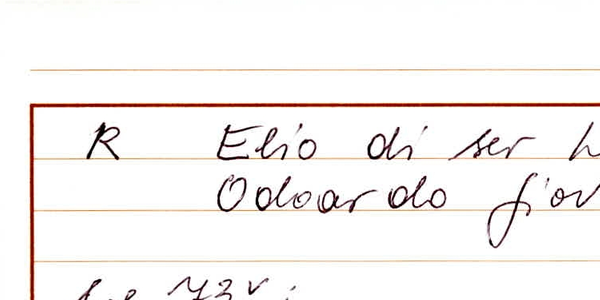 R Elio di ser
Odoardo
73v